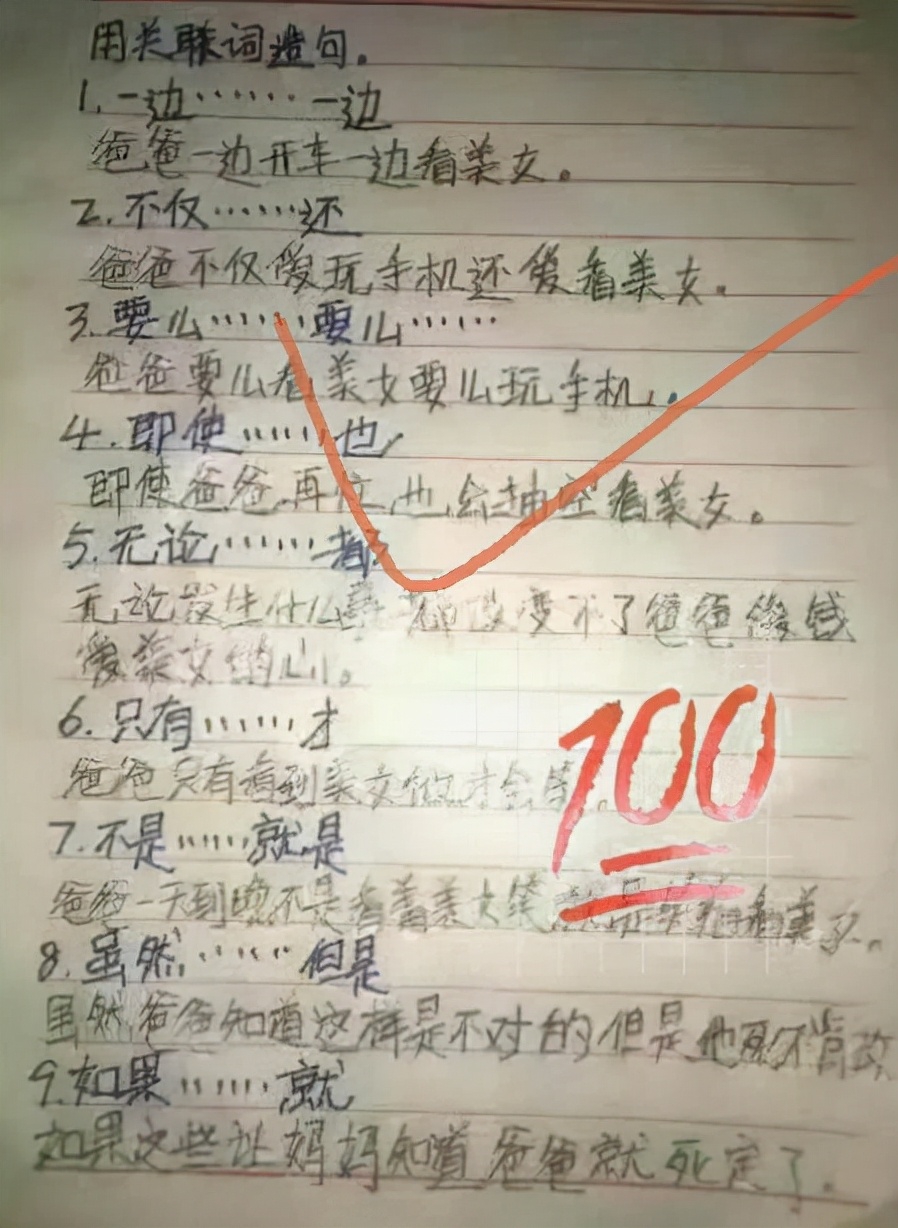 用关联词造句。
1.一边……一边
爸爸一边开车一边看美女。
2.不仅……还
爸爸不仅爱玩手机还爱看美女。
3.要么……要么……
爸爸要么看美女要么玩手机。
4.即使……也
即使爸爸再忙也会抽空看美女。
5.无论……都
无论发生什么事都改变不了爸爸爱钱
爱美女的心。
6.只有……才
爸爸只有看到美女他才会笑。
7.不是……就是
爸爸一天到晚不是看着美女笑就是看美女。
8.虽然……但是
虽然爸爸知道这样是不对的但是他死不肯改
9.如果……就
如果这些让妈妈知道爸爸就死定了。
100